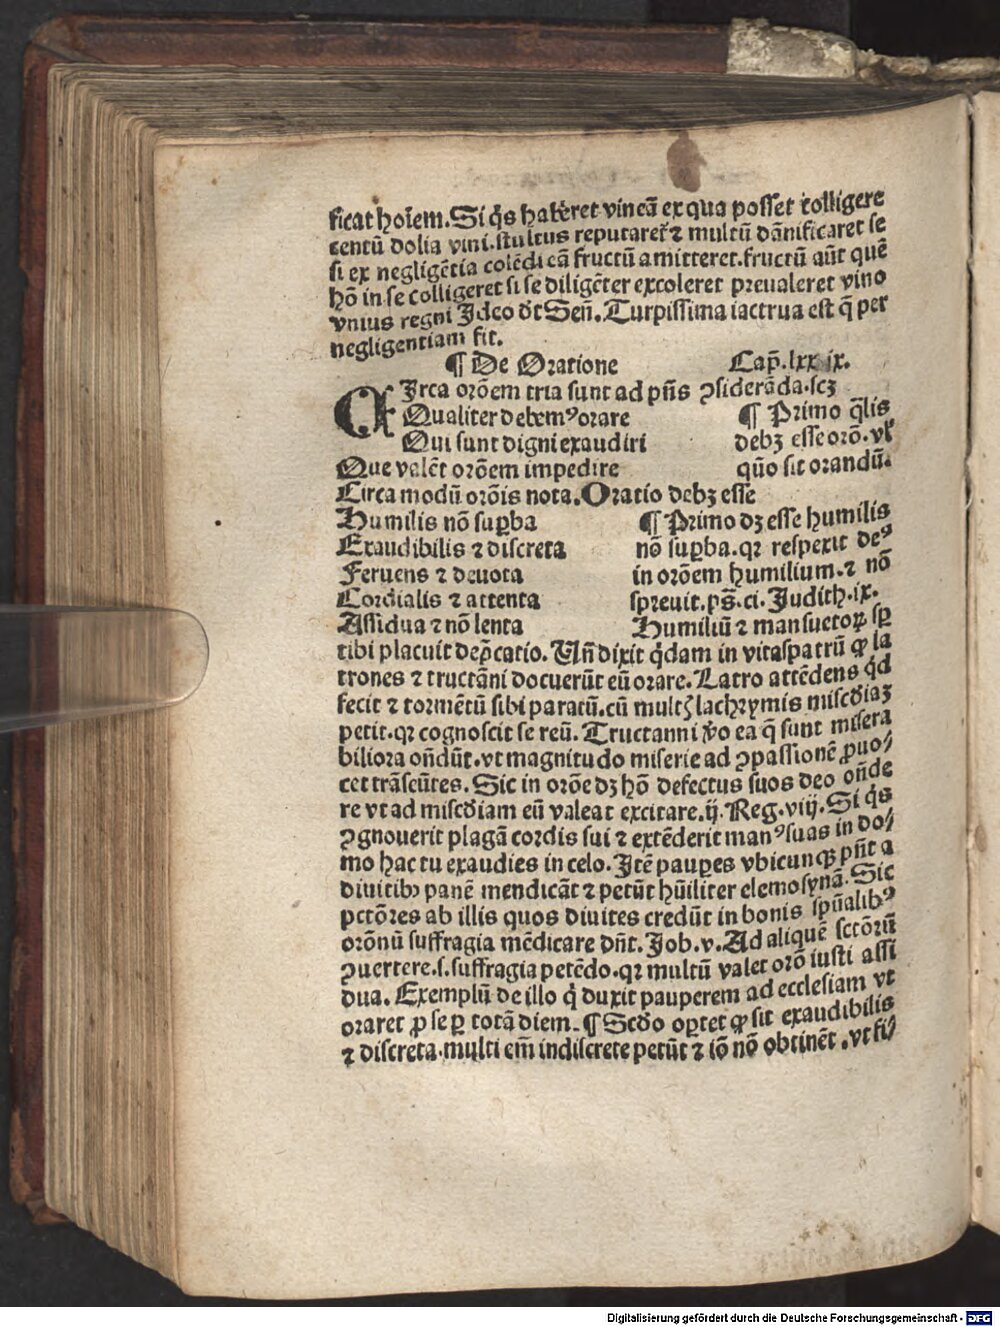 ficat hoīem. Si q̄s haberet vineā ex qua posset colligere
centū dolia vini. stultus reputaret̄ ⁊ multū dānificaret se
si ex negligētia colēdi eā fructū amitteret. fructū aūt quē
hō in se colligeret si se diligēter excoleret preualeret vino
vnius regni Ideo dt Señ. Turpissima iactrua est q̄ per
negligentiam fit.
¶ De Oratione Cap̄. lxxix.
CIrca orōem tria sunt ad pñs ꝯsiderāda. scꝫ
Qualiter debemꝰ orare ¶ Primo q̄lis
Qui sunt digni exaudiri debꝫ esse orō. vl'
Que valēt orōem impedire quō sit orandū.
Circa modū orōis nota. Oratio debꝫ esse
Humilis nō suꝑba ¶ Primo dꝫ esse humilis
Exaudibilis ⁊ discreta nō suꝑba. qꝛ respexit deꝰ
Feruens ⁊ deuota in orōem humilium. ⁊ nō
Cordialis ⁊ attenta spreuit. ps̄. ci. Judith. ix.
Assidua ⁊ nō lenta Humiliū ⁊ mansuetoꝝ sꝑ
tibi placuit dep̄catio. Uñ dixit q̄dam in vitaspatrū ꝙ la
trones ⁊ tructāni docuerūt eū orare. Latro attēdens q̄d
fecit ⁊ tormētū sibi paratū. cū multꝭ lachrymis misc̄diaꝫ
petit. qꝛ cognoscit se reū. Tructanni v̄o ea q̄ sunt misera
biliora oñdūt. vt magnitudo miserie ad ꝯpassionē ꝓuo⸗
cet trāseūtes. Sic in orōe dꝫ hō defectus suos deo oñde
re vt ad misc̄diam eū valeat excitare. ij. Reg. viij. Si q̄s
ꝯgnouerit plagā cordis sui ⁊ extēderit manꝰ suas in do⸗
mo hac tu exaudies in celo. Itē pauꝑes vbicunqꝫ pn̄t a
diuitibꝫ panē mendicāt ⁊ petūt hūiliter elemosynā. Sic
pctōres ab illis quos diuites credūt in bonis spūalibꝰ
orōnū suffragia mēdicare dn̄t. Job. v. Ad aliquē sctōrū
ꝯuertere. s. suffragia petēdo. qꝛ multū valet orō iusti assi
dua. Exemplū de illo q̄ duxit pauperem ad ecclesiam vt
oraret ꝓ se ꝑ totā diem. ¶ Scd̄o oꝑtet ꝙ sit exaudibilis
⁊ discreta. multi em̄ indiscrete petūt ⁊ iō nō obtinēt. vt fi⸗
Digitalisierung gefördert durch die Deutsche Forschungsgemeinschaft - DFG